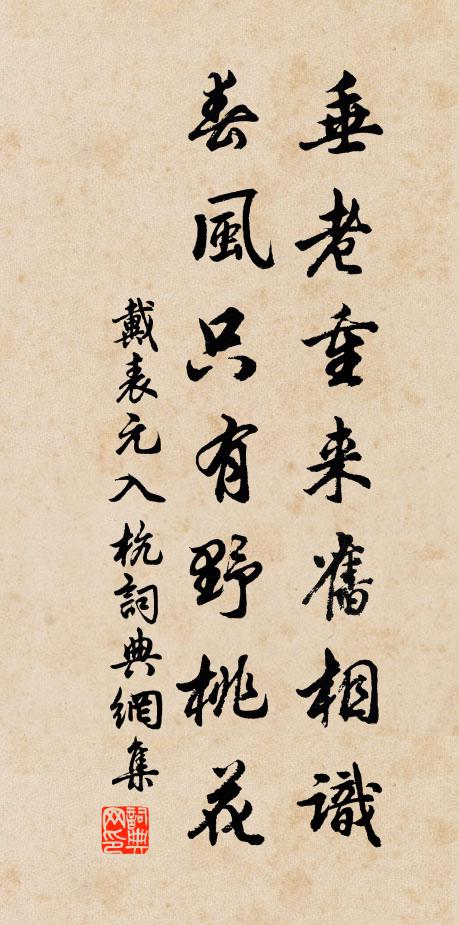 垂老重来舊相識
春風只有野桃花
戴表元入杭詞典網集
詞典网印